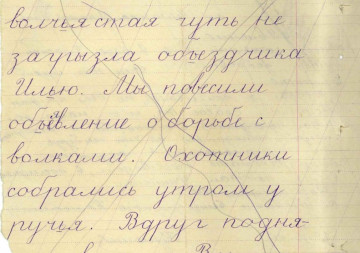 волчья стая чуть не
загрызла объездчика
Илью. Мы повесили
объявление о борьбе с
волками. Охотники
собрались утром у
ручья. Вдруг подня-